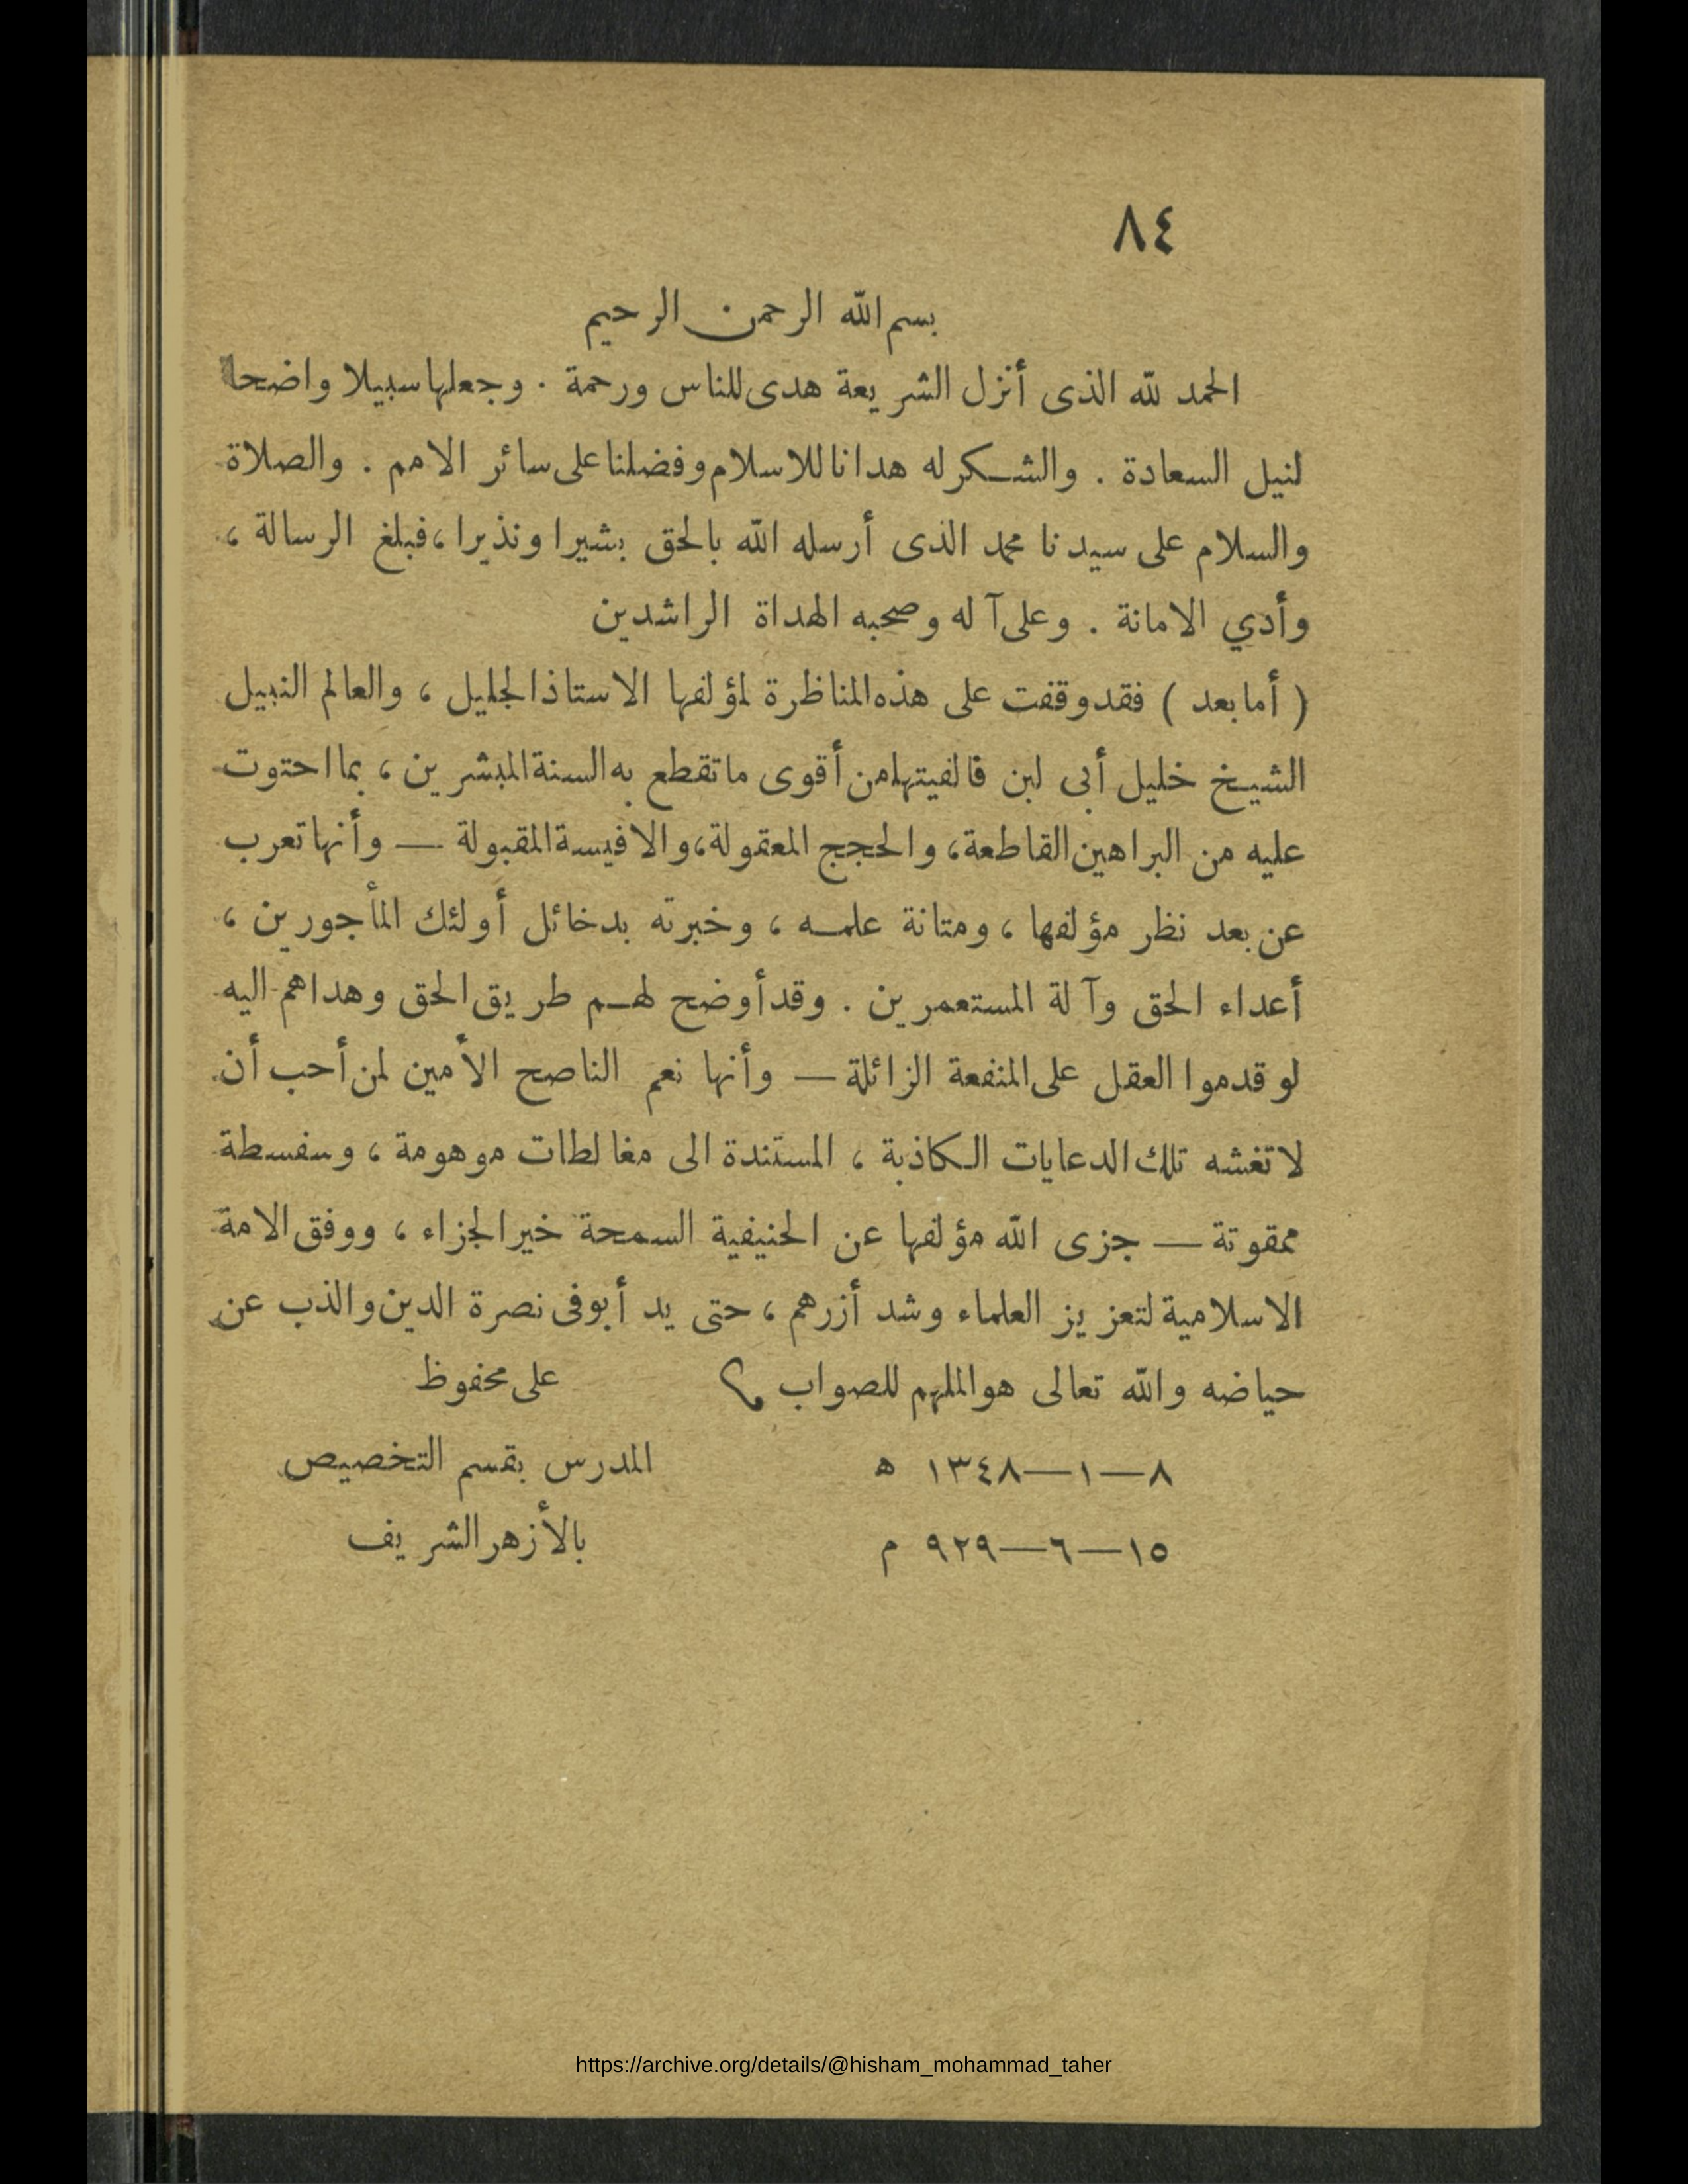 ٨٤
بسم الله الرحمن الرحيم
الحمد لله الذى أنزل الشريعة هدى للناس ورحمة . وجعلها سبيلا واضحا
لنيل السعادة . والشكر له هدانا للاسلام وفضلنا على سائر الامم . والصلاة
والسلام على سيدنا محمد الذى أرسله الله بالحق بشيرا ونذيرا ، فبلغ الرسالة ،
وأدي الامانة . وعلى آله وصحبه الهداة الراشدين
( أما بعد ) فقد وقفت على هذه المناظرة لمؤلفها الاستاذ الجليل ، والعالم النبيل
الشيخ خليل أبى لبن فالفيتها من أقوى ما تقطع به السنة المبشرين ، بما احتوت
عليه من البراهين القاطعة ، والحجج المعقولة ، والاقيسة المقبولة — وأنها تعرب
عن بعد نظر مؤلفها ، ومتانة علمه ، وخبرته بدخائل أولئك المأجورين ،
أعداء الحق وآلة المستعمرين . وقد أوضح لهم طريق الحق وهداهم اليه
لو قدموا العقل على المنفعة الزائلة — وأنها نعم الناصح الأمين لمن أحب أن
لا تغشه تلك الدعايات الكاذبة ، المستندة الى مغالطات موهومة ، وسفسطة
ممقوتة — جزى الله مؤلفها عن الحنيفية السمحة خير الجزاء ، ووفق الامة
الاسلامية لتعزيز العلماء وشد أزرهم ، حتى يدأبوا فى نصرة الدين والذب عن
حياضه والله تعالى هو الملهم للصواب على محفوظ
٨—١—١٣٤٨ ه المدرس بقسم التخصيص
١٥—٦—٩٢٩ م بالأزهر الشريف
https://archive.org/details/@hisham_mohammad_taher